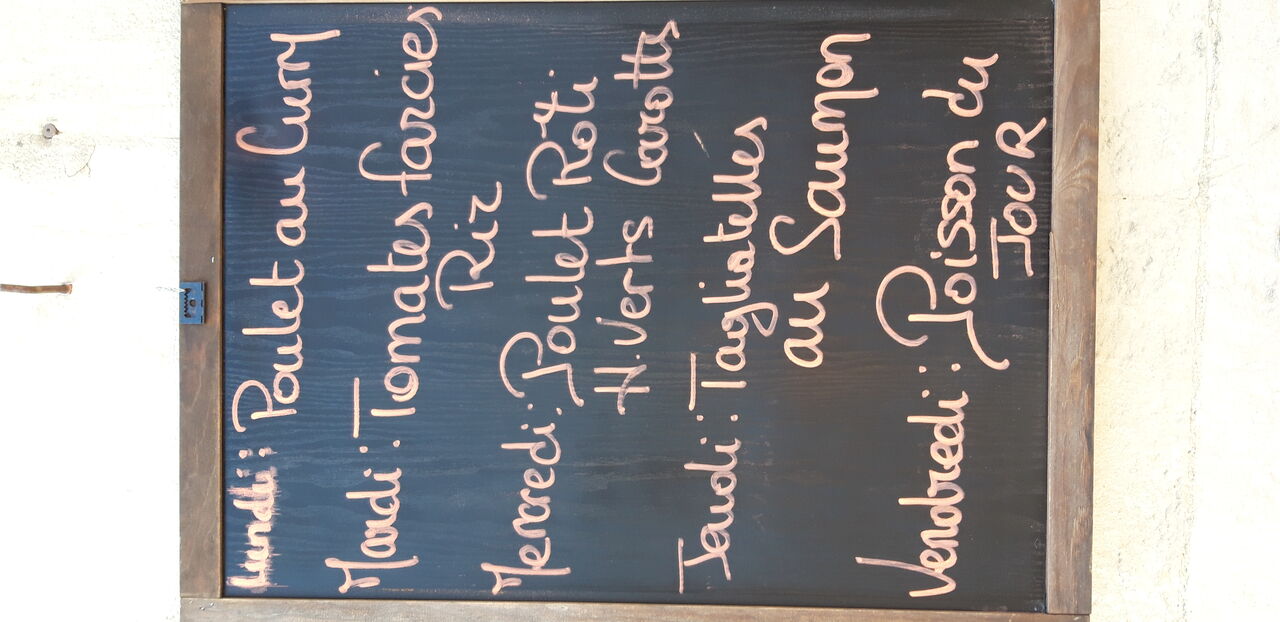 Lundi : Poulet au Curry
Mardi : Tomates farcies
Riz
Mercredi : Poulet Rôti
H. Verts Carottes
Jeudi : Tagliatelles
au Saumon
Vendredi : Poisson du
JOUR